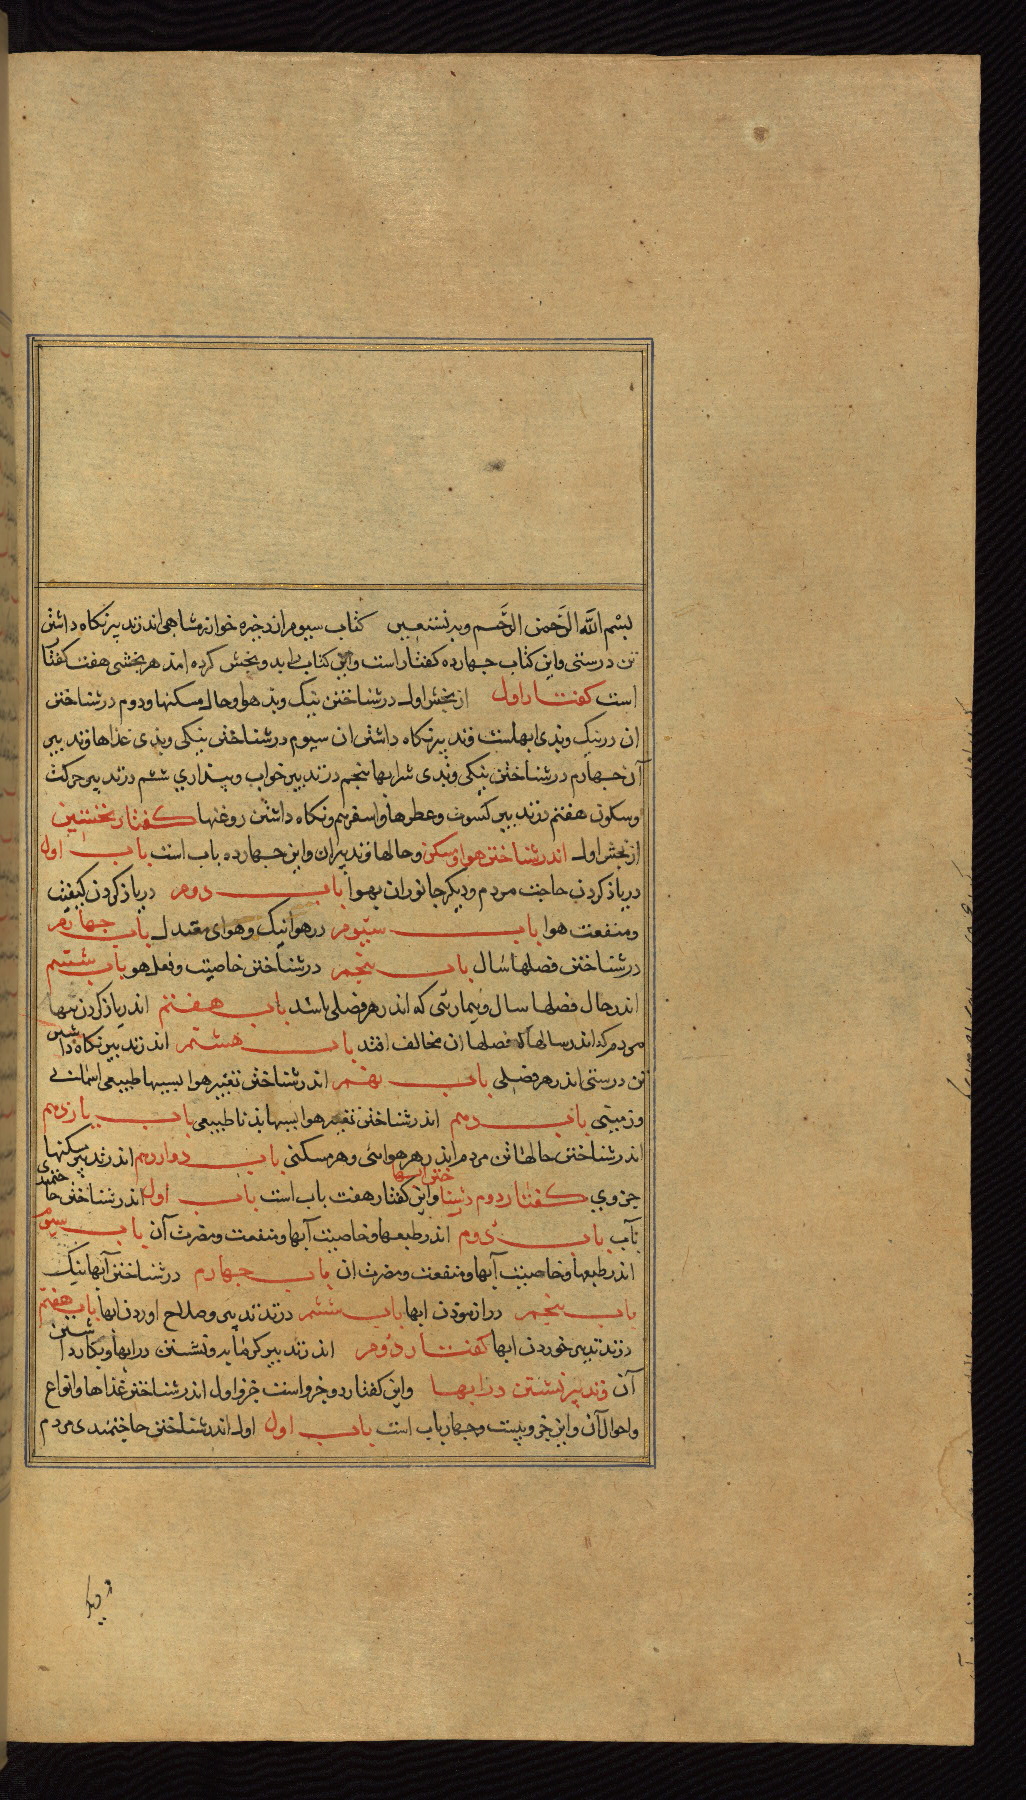 بسم الله الرحمن الرحیم وبه نستعین کتاب سیوم از ذخیره خوارزمشاهی اندر تدبیر نکاه داشتن
تن درستی واین کتاب جهارده کفتار است واین کتاب را بدو بخش کرده امد هر بخشی هفت کفتار
است کفتار اول از بخش اول در شناختن نیک وبد هوا وحال مسکنها ودوم در شناختن
آن جهارم در شناختن نیکی وبدی شرابها پنجم در تدبیر خواب وبیداری ششم در تدبیر حرکت
وسکون هفتم در تدبیر کسوت وعطرها واسفرهم ونکاه داشتن روغنها کفتار نخستین
از بخش اول اندر شناختن هوا ومسکن وحالها وتدبیر ان واین جهارده باب است باب اول
در یاذ کردن حاجت مردم ودیکر جانوران بهوا باب دوم در یاذ کردن کیفیت
ومنفعت هوا باب سیوم در هوا نیک وهوای معتدل باب جهارم
در شناختن فصلها سال باب پنجم در شناختن خاصیت وفعل هو باب ششم
اندر حال فصلها سال وبیماریی که اندر هر فصلی باشد باب هفتم اندر یاذ کردن تبها
مردم که اندر سالها که فصلها ان مخالف افتد باب هشتم اندر تدبیر نکاه داشتن
تن درستی اندر هر فصلی باب نهم اندر شناختن تغییر هوا بسببها طبیعی اسمانی
وزمینی باب دهم اندر شناختن تغیر هوا بسببها بذ نا طبیعی باب یازدهم
اندر شناختن حالها تن مردم اندر هر هوایی وهر مسکنی باب دوازدهم اندر تدبیر مسکنها
جزوی کفتار دوم در شناختن ابها واین کفتار هفت باب است باب اول اندر شناختن حاجتمندی
بآب باب دوم اندر طبعها وخاصیت آبها ومنفعت ومضرت آن باب سیوم
اندر طبعها وخاصیت آبها ومنفعت ومضرت ان باب جهارم در شناختن آبها نیک
باب پنجم در ازمودن ابها باب ششم در تدبیر وصلاح اوردن ابها باب هفتم
در تدبیر خوردن ابها کفتار دوم اندر تدبیر کرمابه ونشستن در ابها وبکار داشتن
آن وتدبیر نشستن در ابها واین کفتار دو جزو است جزو اول اندر شناختن غذاها وانواع
واحوال آن واین جزو بیست وجهار باب است باب اول اول اندر شناختن حاجتمندی مردم